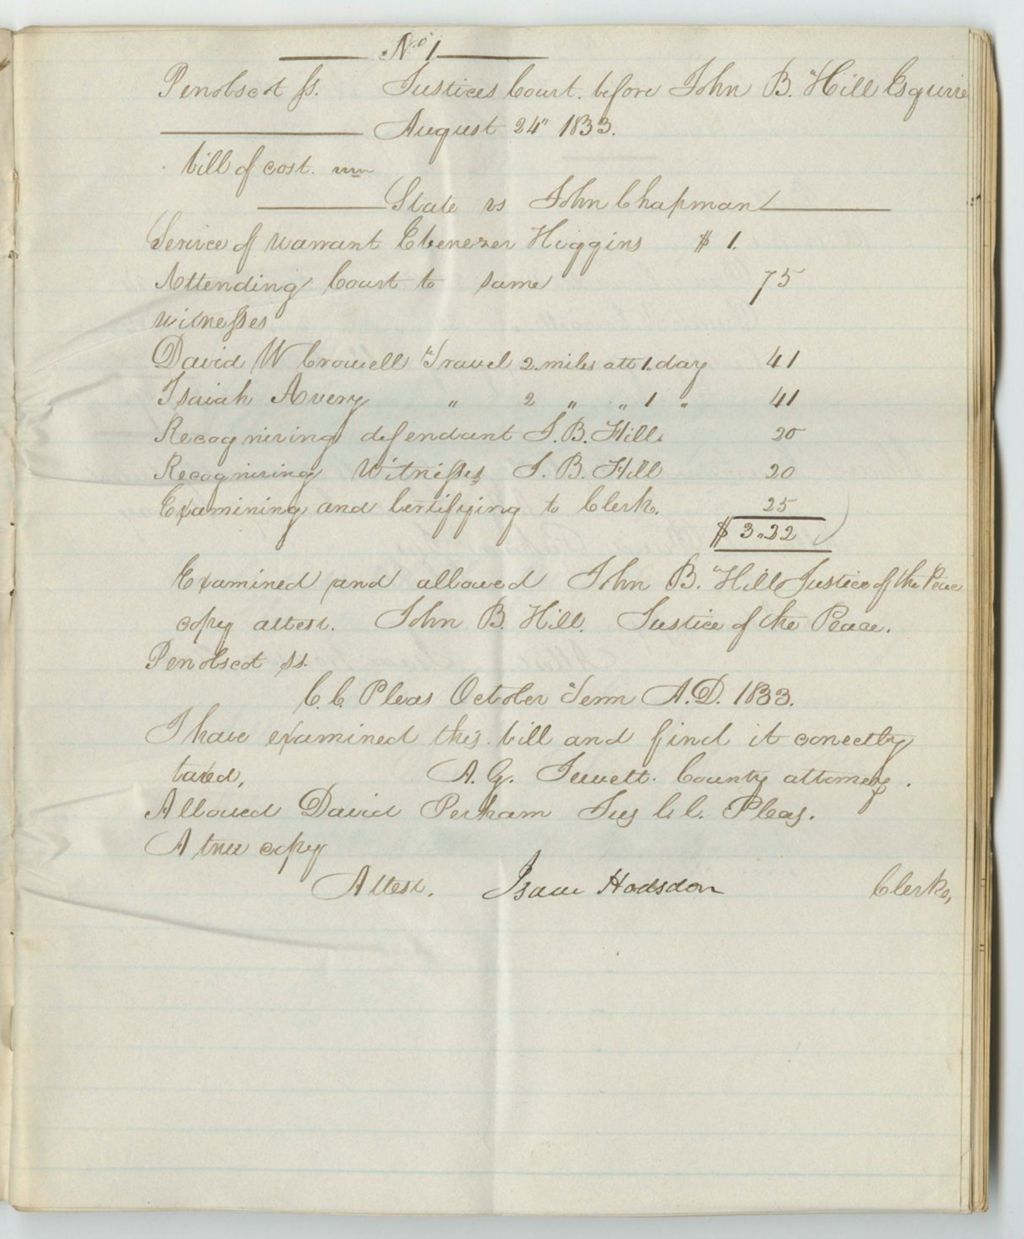 No 1
Penobscot ss. Justices Court before John B. Hill Esquire
August 24" 1833.
bill of cost.
State vs John Chapman
Service of Warrant Ebenezer Higgins $ 1.
Attending Court to same 75
Witnesses
David W Crowell Travel 2 miles att 1 day 41
Isaiah Avery " 2 " " 1 " 41
Recognising defendant J. B. Hill 20
Recognising Witnesses J. B. Hill 20
Examining and Certifying to Clerk. 25
$ 3.22
Examined and allowed John B. Hill Justice of the Peace
copy attest. John B. Hill. Justice of the Peace.
Penobscot ss.
C. C Pleas October Term A.D. 1833.
I have examined this bill and find it correctly
taxed, A. G. Jewett. County attorney.
Allowed David Perham Jus C. C. Pleas.
A true copy
Attest. Isaac Hodsdon Clerk,